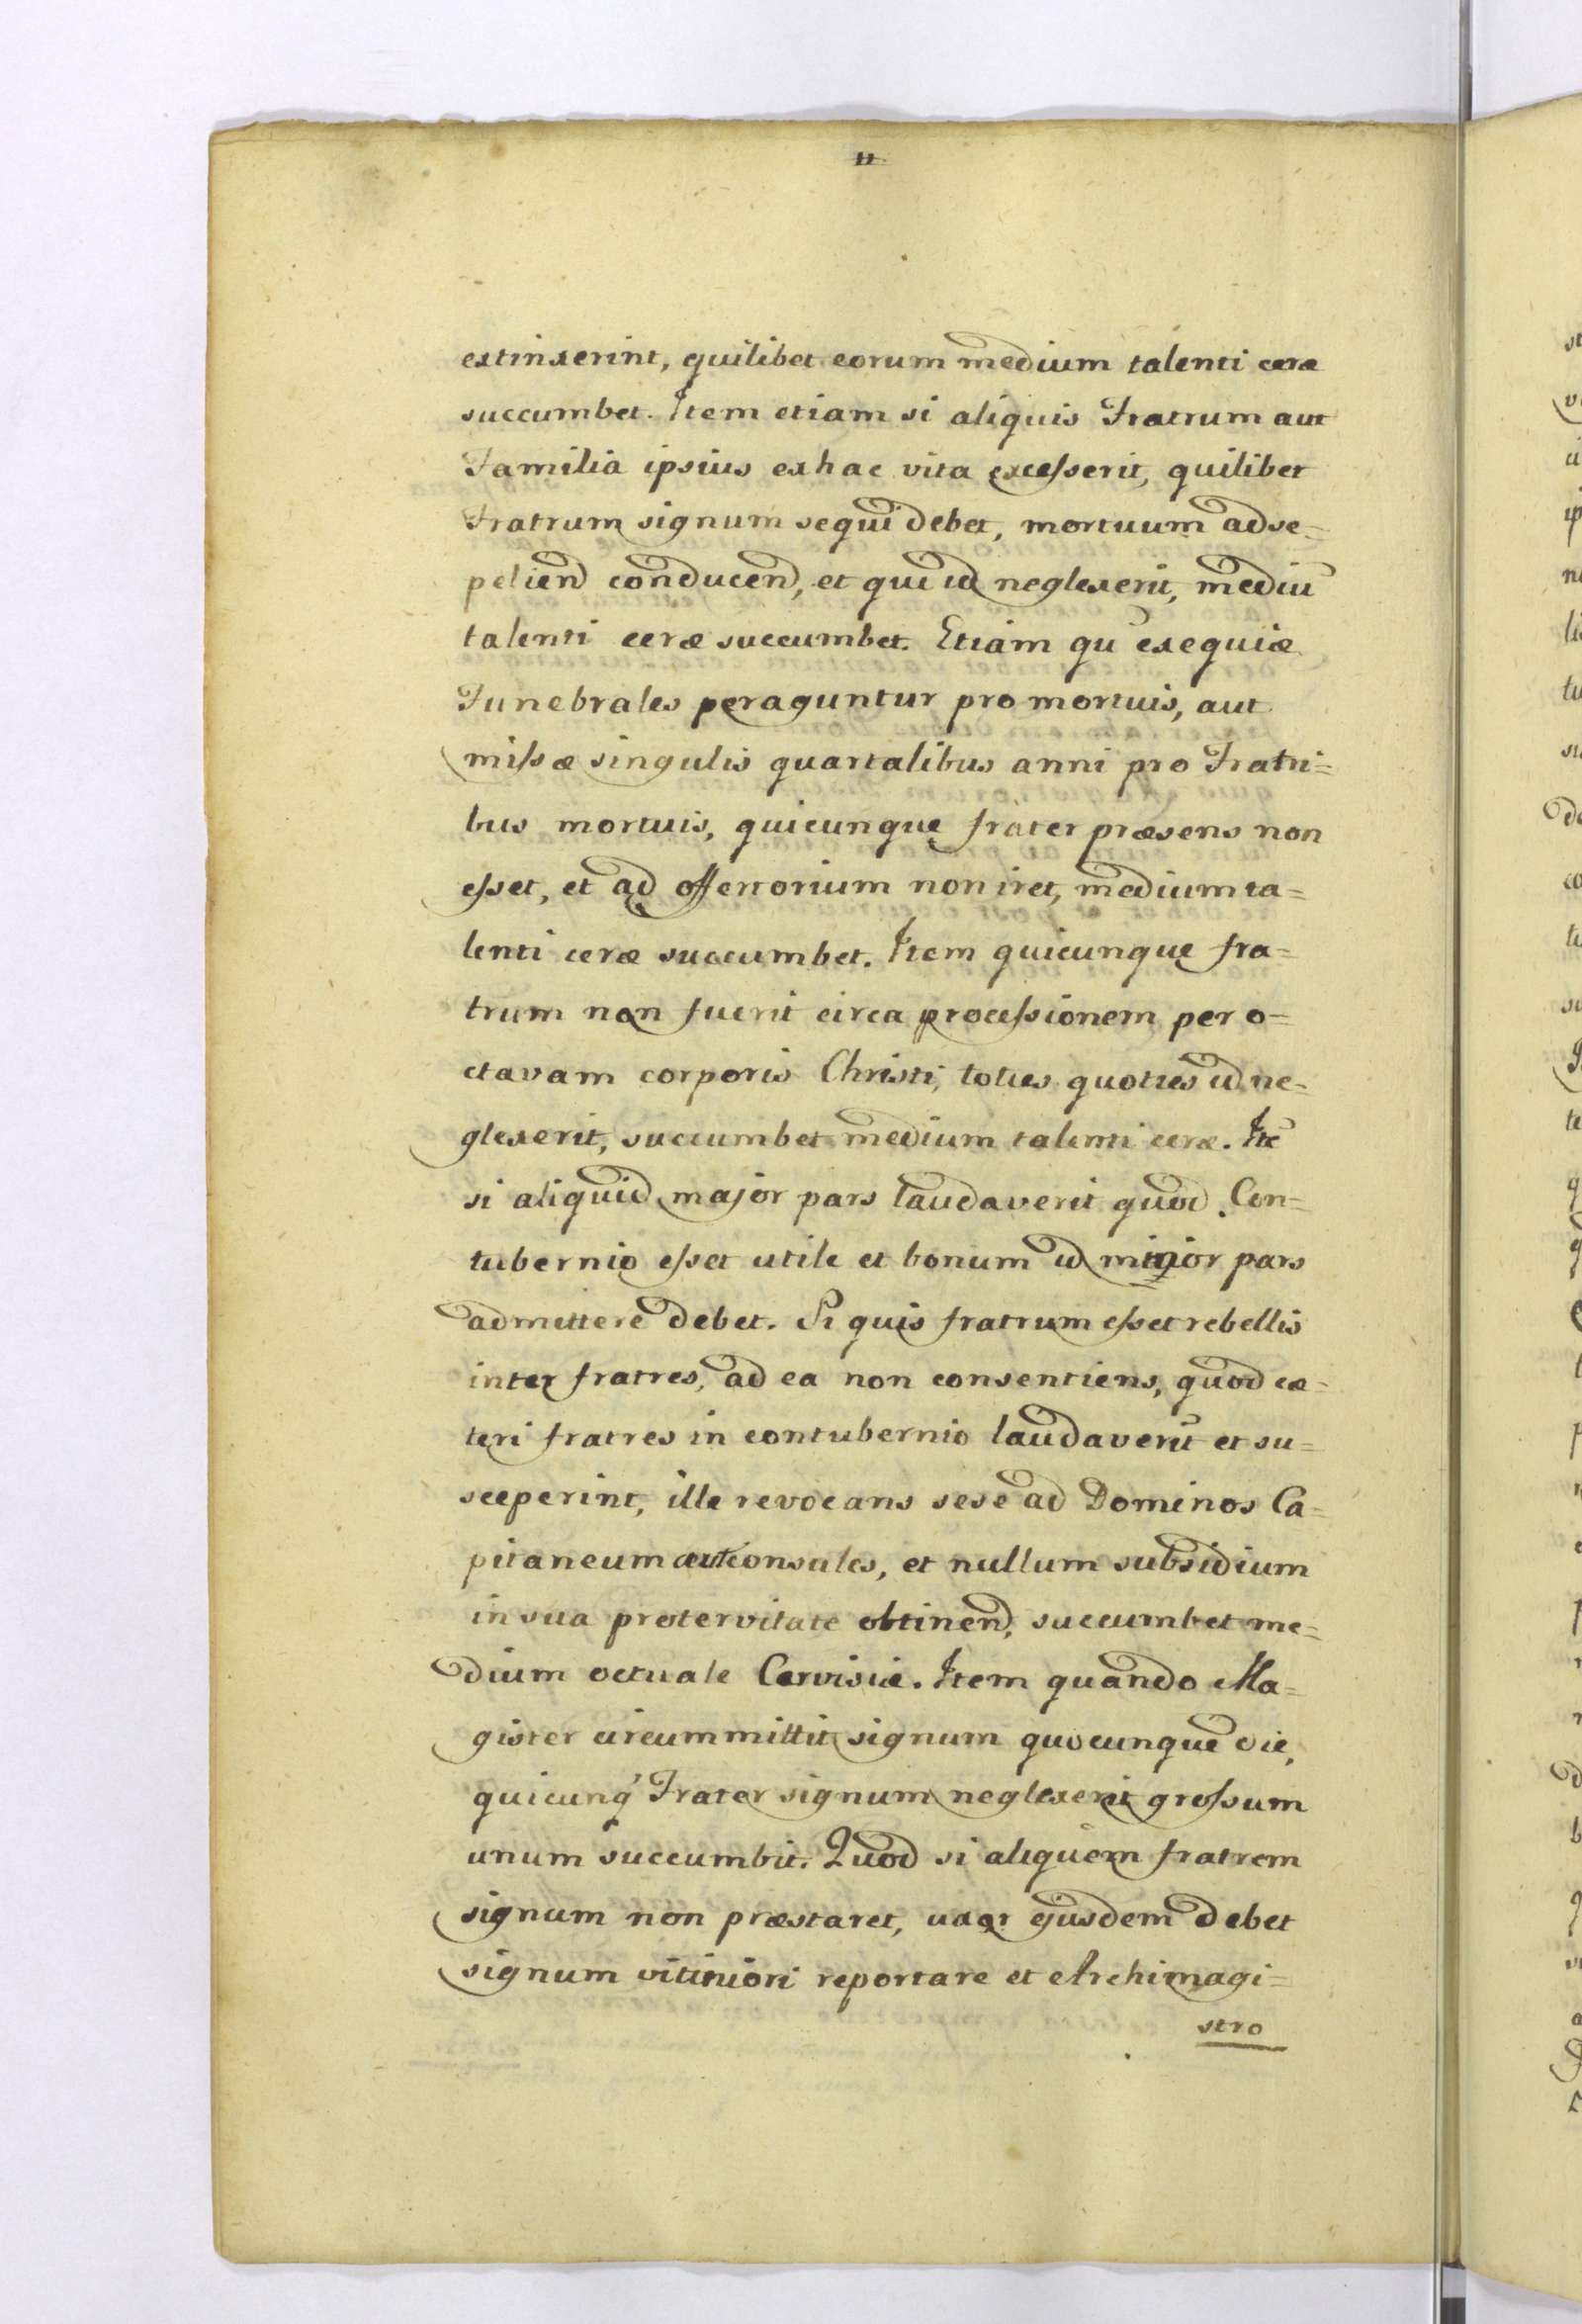 11
extinxerint, quilibet eorum medium talenti ceræ
succumbet. Item etiam si aliquis Fratrum aut
Familia ipsius ex hac vita excesserit, quilibet
Fratrum signum sequi debet, mortuum ad se-
pelien̄d conducen̄d, et qui id neglexerit, mediū
talenti ceræ succumbet. Etiam qū exequiæ
Funebrales peraguntur pro mortuis, aut
missæ singulis quartalibus anni pro Fratri=
bus mortuis, quicunque frater præsens non
esset, et ad offertorium non iret, medium ta=
lenti ceræ succumbet. Item quicunque fra=
trum non fuerit circa processionem per o=
ctavam corporis Christi, toties quoties id ne-
glexerit, succumbet medium talenti ceræ. Itē
si aliquid major pars laudaverit quod Con=
tubernio esset utile et bonum id minor pars
admittere debet. Si quis fratrum esset rebellis
inter fratres, ad ea non consentiens, quod cæ-
teri fratres in contubernio laudaverīt et su=
sceperint, ille revocans sese ad Dominos Ca-
pitaneum aut consules, et nullum subsidium
in sua protervitate obtinen̄d, succumbet me-
dium octuale Cervisiæ. Item quando Ma=
gister circummittit signum quocunque die,
quicunq' Frater signum neglexerit grossum
unum succumbit. Quod si aliquem fratrem
signum non præstaret, uxor ejusdem debet
signum viciniori reportare et Archimagi=
stro